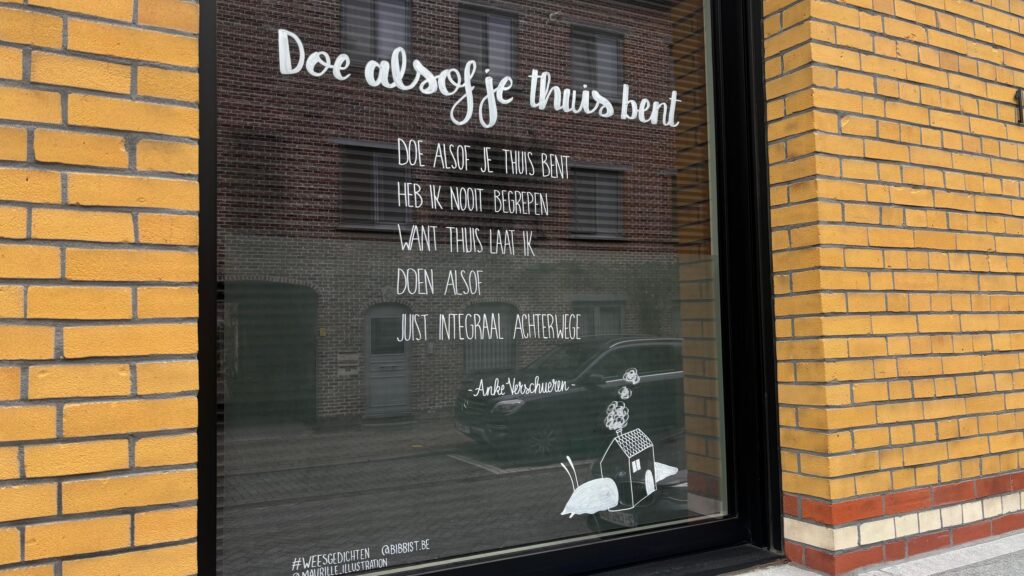 Doe alsof je thuis bent
DOE ALSOF JE THUIS BENT
HEB IK NOOIT BEGREPEN
WANT THUIS LAAT IK
DOEN ALSOF
JUIST INTEGRAAL ACHTERWEGE
- Anke Verschueren -
#WEESGEDICHTEN @BIBBIST.BE
@MAURILLE_ILLUSTRATION